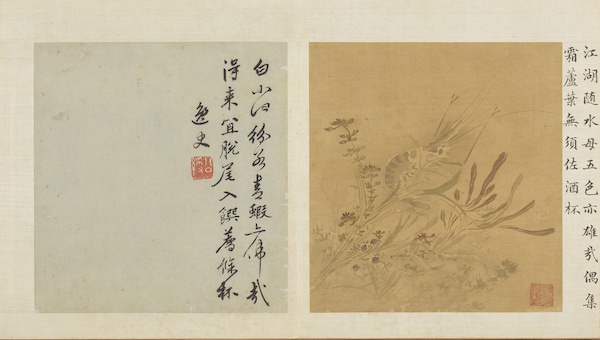 江湖随水母五色亦雄哉偶集
霜蘆葉無須佐酒杯
白小何紛若青蝦上席哉
得来宜脱尾入饌薦餘杯
逸史